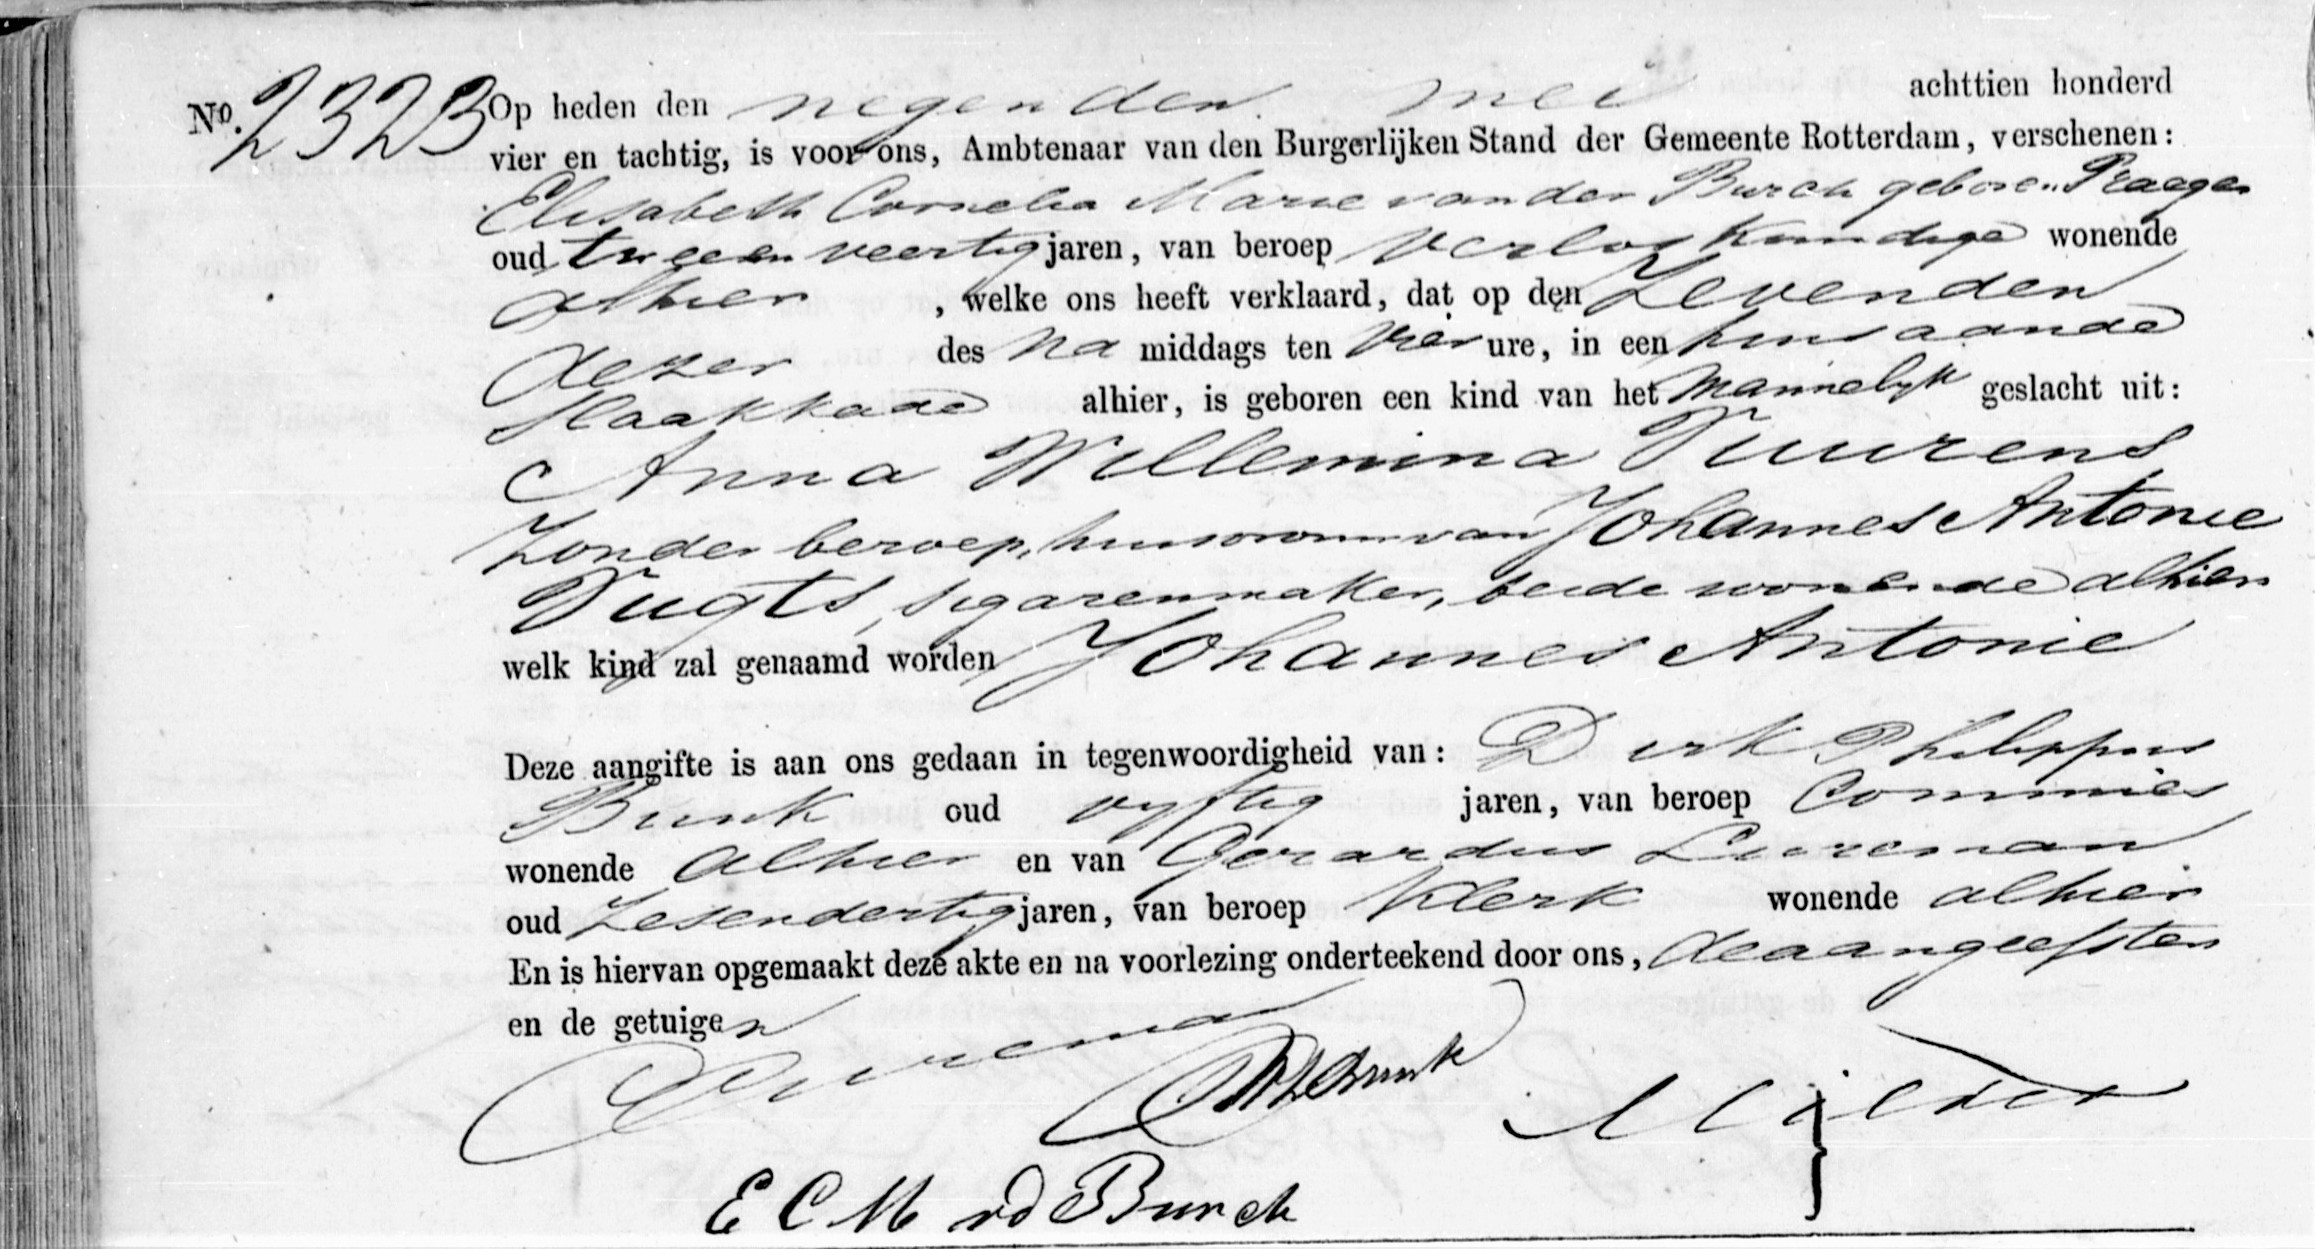 No. 2323 Op heden den negenden mei achttien honderd
vier en tachtig, is voor ons, Ambtenaar van den Burgerlijken Stand der Gemeente Rotterdam, verschenen:
Elisabeth Cornelia Marie van der Burch geboren Praeger
oud tweeenveertig jaren, van beroep verloskundige wonende
alhier, welke ons heeft verklaard, dat op den Zevenden
dezer des na middags ten vier ure, in een huis aan de
Slaakkade alhier, is geboren een kind van het mannelijk geslacht uit:
Anna Willemina Vuurens
Zonder beroep, huisvrouw van Johannes Antonie
Vugts, sigarenmaker, beide wonende alhier
welk kind zal genaamd worden Johannes Antonie
Deze aangifte is aan ons gedaan in tegenwoordigheid van: Dirk Philippus
Brunk oud vyftig jaren, van beroep Commies
wonende alhier en van Gerardus Luureman
oud Zesendertig jaren, van beroep Klerk wonende alhier
En is hiervan opgemaakt deze akte en na voorlezing onderteekend door ons, de aangeefster
en de getuigen
E C M vd Burch